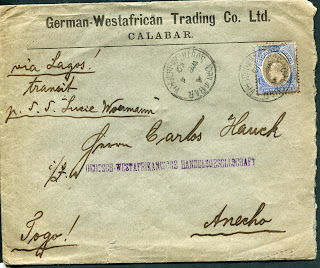 German-Westafrican Trading Co. Ltd.
CALABAR.
via Lagos!
transit
p. S. S. "Lucie Woermann"
CALABAR
Herrn Carlos Hauck
DEUTSCH-WESTAFRIKANISCHE HANDELSGESELLSCHAFT
Anecho
Togo!